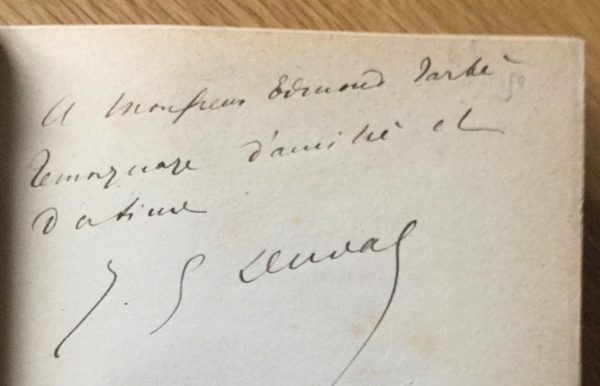 A Monsieur Edmond Tarbé
Temoignage d'amitié et
d'estime